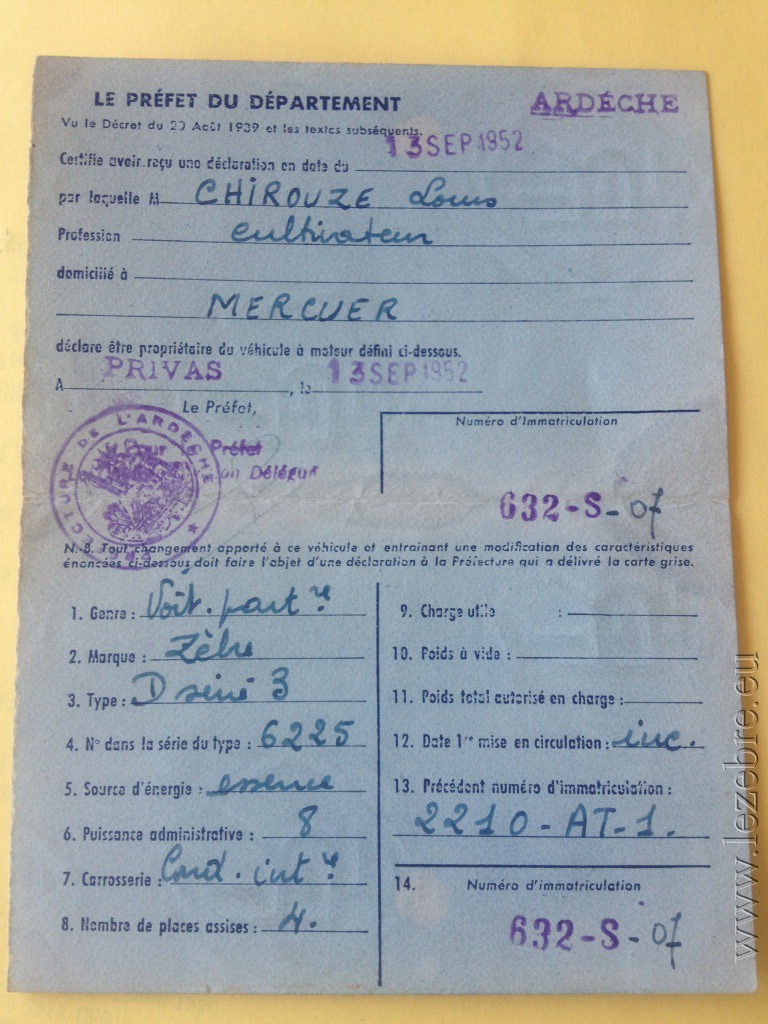 LE PRÉFET DU DÉPARTEMENT ARDÉCHE
Vu le Décret du 20 Août 1939 et les textes subséquents.
Certifie avoir reçu une déclaration en date du 13 SEP 1952
par laquelle M CHIROUZE Louis
Profession cultivateur
domicilié à
MERCUER
déclare être propriétaire du véhicule à moteur défini ci-dessous.
A PRIVAS, le 13 SEP 1952
Le Préfet,
Préfet
on Délégué
ECTURE DE L'ARDÈCHE
Numéro d'Immatriculation
632-S-07
N.-B. Tout changement apporté à ce véhicule et entrainant une modification des caractéristiques
énoncées ci-dessous doit faire l'objet d'une déclaration à la Préfecture qui a délivré la carte grise.
1. Genre : Voit. part re
2. Marque : Zèbre
3. Type : D série 3
4. N° dans la série du type : 6225
5. Source d'énergie : essence
6. Puissance administrative : 8
7. Carrosserie : Cond. int re
8. Nombre de places assises : 4.
9. Charge utile :
10. Poids à vide :
11. Poids total autorisé en charge :
12. Date 1re mise en circulation : inc.
13. Précédent numéro d'immatriculation :
2210-AT-1.
14. Numéro d'immatriculation
632-S-07
www.lezebre.eu